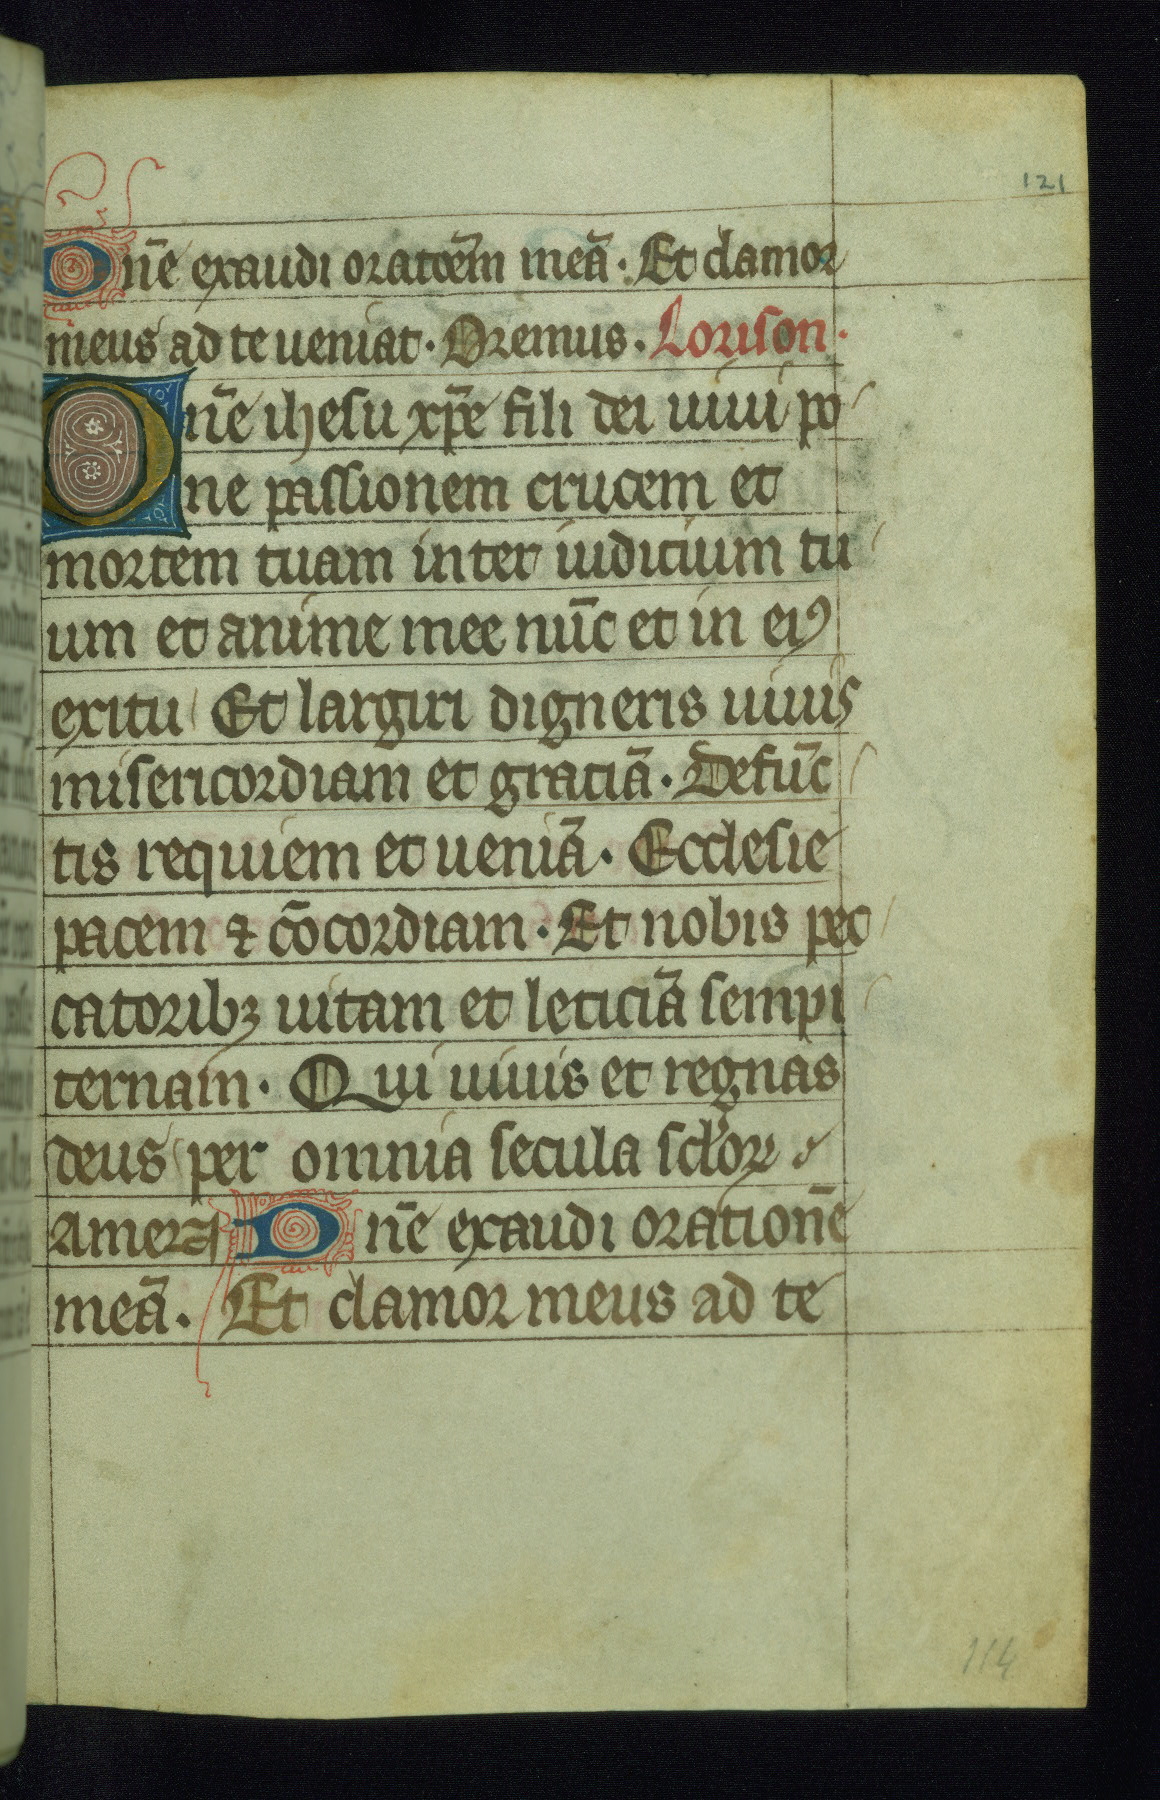 121
Dn̄e exaudi oratōem̄ meā · Et clamor
meus ad te ueniat · Oremus · Lorison ·
Dn̄e ihesu xp̄e fili dei uiui po
ne passionem crucem et
mortem tuam inter iudicium tu
um et anime mee nūc et in eiꝰ
exitu Et largiri digneris uiuis
misericordiam et gratiā · Defūc
tis requiem et ueniā · Ecclesie
pacem ⁊ cōcordiam · Et nobis pec
catoribꝫ uitam et leticiā sempi
ternam · Qui uiuis et regnas
deus per omnia secula sclōꝝ
Amen Dn̄e exaudi orationē
meā · Et clamor meus ad te
114